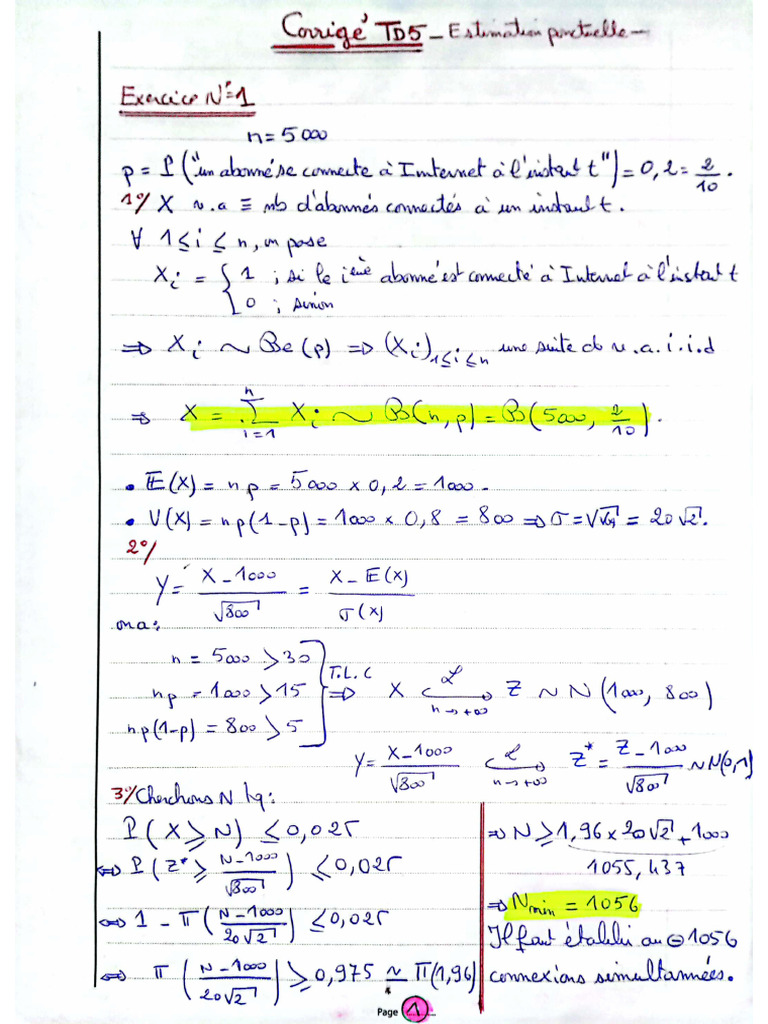 Corrigé TD5 - Estimation ponctuelle -
Exercice N°1
n = 5000
p = P("un abonné se connecte à Internet à l'instant t") = 0,2 = 2/10.
1°/ X v.a ≡ nb d'abonnés connectés à un instant t.
∀ 1 ≤ i ≤ n, on pose
Xi = { 1 ; si le ième abonné est connecté à Internet à l'instant t
0 ; sinon
⇒ Xi ~ Be(p) ⇒ (Xi)1≤i≤n une suite de v.a.i.i.d
⇒ X = Σ_{i=1}^{n} Xi ~ B(n,p) = B(5000, 2/10).
• E(X) = np = 5000 × 0,2 = 1000.
• V(X) = np(1-p) = 1000 × 0,8 = 800 ⇒ σ = √ = 20√2.
2°/
Y = (X-1000)/√800 = (X-E(X))/σ(X)
on a:
n = 5000 > 30
np = 1000 > 15
np(1-p) = 800 > 5
T.L.C ⇒ X →(L, n→+∞) Z ~ N(1000, 800)
Y = (X-1000)/√800 →(L, n→+∞) Z* = (Z-1000)/√800 ~ N(0,1)
3°/ Cherchons N tq:
P(X ≥ N) ≤ 0,025
⇔ P(Z* ≥ (N-1000)/√800) ≤ 0,025
⇔ 1 - Π((N-1000)/20√2) ≤ 0,025
⇔ Π((N-1000)/20√2) ≥ 0,975 ≃ Π(1,96)
⇒ N ≥ 1,96×20√2 + 1000
1055,437
⇒ Nmin = 1056
Il faut établir au ⊖ 1056
connexions simultannées.
Page 1